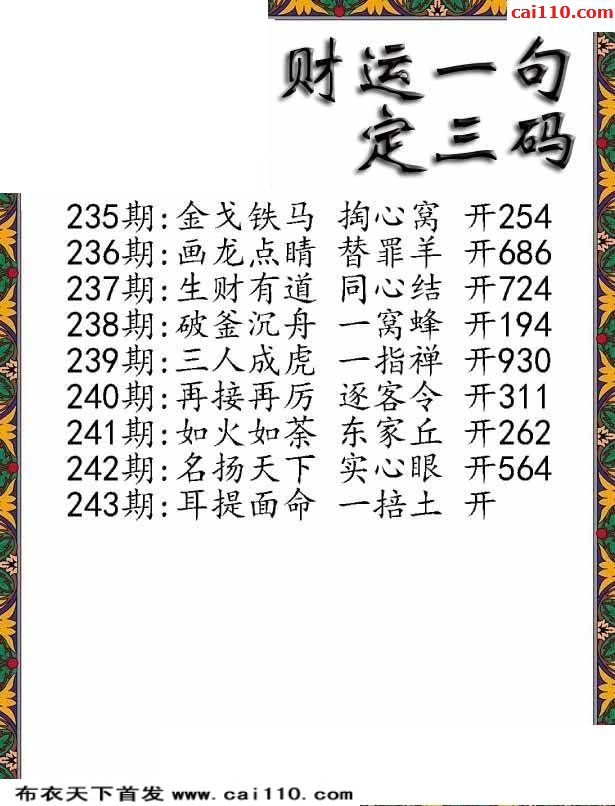 cai110.com
财运一句
定三码
235期:金戈铁马 掏心窝 开254
236期:画龙点睛 替罪羊 开686
237期:生财有道 同心结 开724
238期:破釜沉舟 一窝蜂 开194
239期:三人成虎 一指禅 开930
240期:再接再厉 逐客令 开311
241期:如火如荼 东家丘 开262
242期:名扬天下 实心眼 开564
243期:耳提面命 一掊土 开
布衣天下首发 www.cai110.com